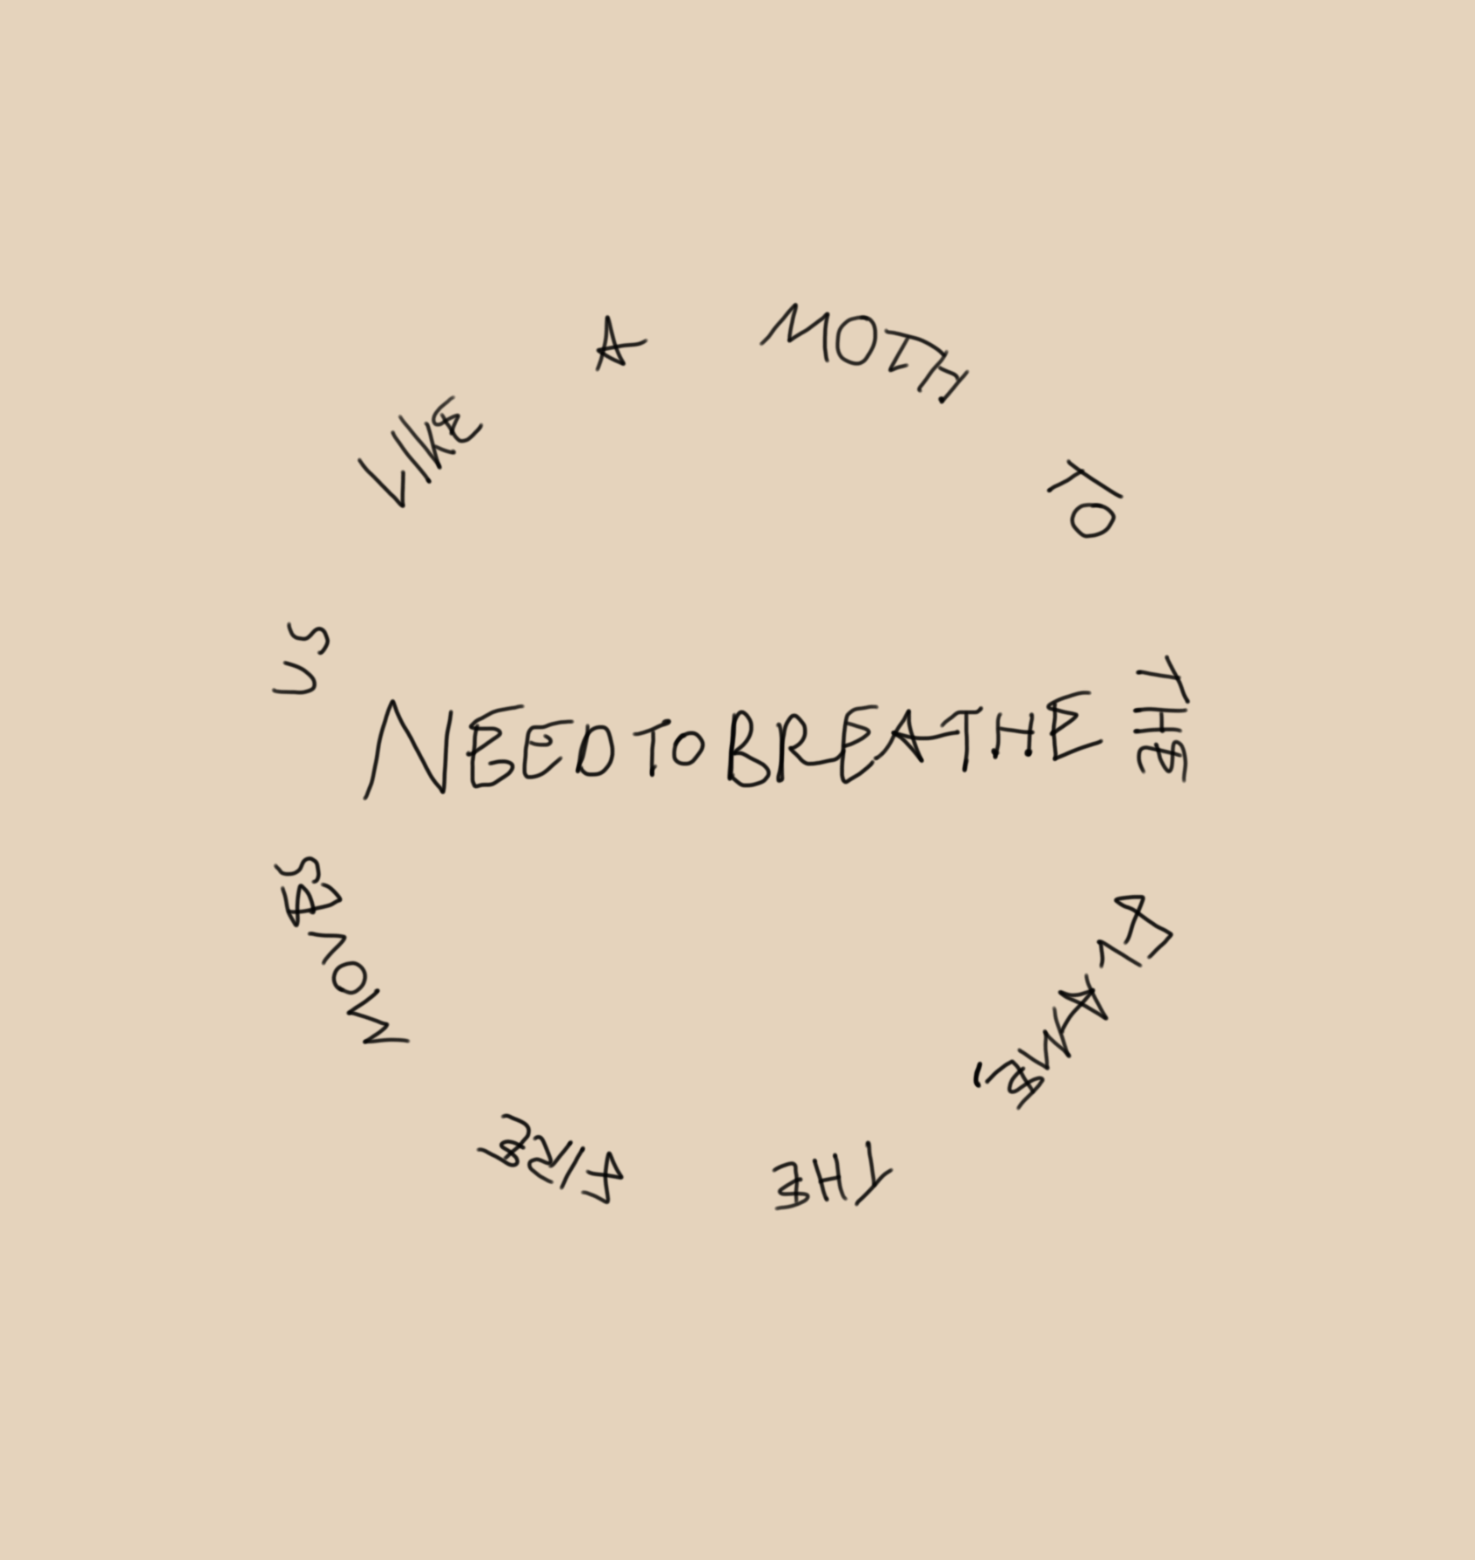 LIKE A MOTH TO THE FLAME, THE FIRE MOVES US
NEEDTOBREATHE